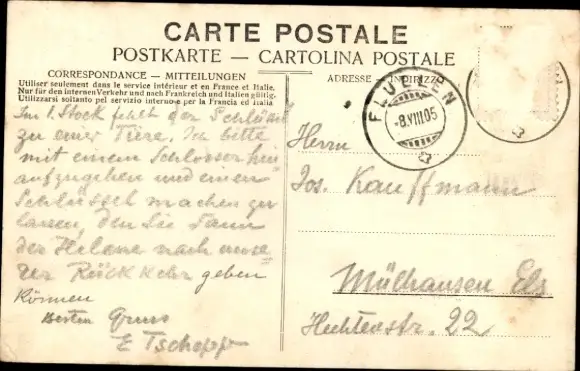 CARTE POSTALE
POSTKARTE — CARTOLINA POSTALE
CORRESPONDANCE — MITTEILUNGEN
Utiliser seulement dans le service intérieur et en France et Italie.
Nur für den internen Verkehr und nach Frankreich und Italien gültig.
Utilizzarsi soltanto pel servizio interno e per la Francia ed Italia
ADRESSE — INDIRIZZO
FLUELEN
-8.VIII.05
Im I. Stock fehlt der Schlüssel
zu einer Türe. Ich bitte
mit einem Schlosser hin
aufzugehen und einen
Schlüssel machen zu
lassen, den Sie dann
der Helene nach unse
rer Rückkehr geben
können
besten Gruss
E Tschopp
Herrn
Jos. Kauffmann
Mülhausen Els
Hechtenstr. 22